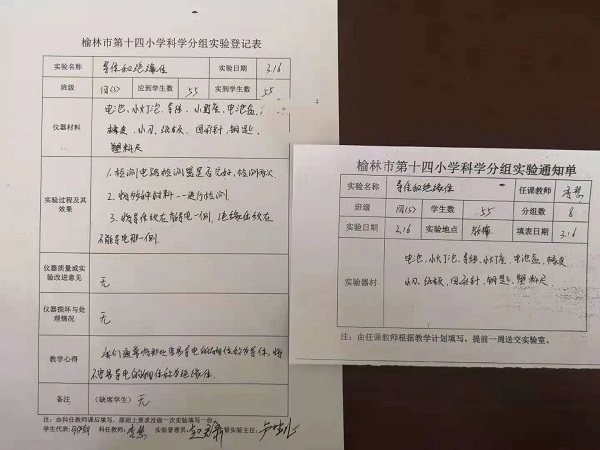 榆林市第十四小学科学分组实验登记表
实验名称 导体和绝缘体 实验日期 3.16
班级 四(5) 应到学生数 55 实到学生数 55
仪器材料
电池、小灯泡、导线、小灯座、电池盒、
橡皮、小刀、纸板、回形针、钢匙、
塑料尺
实验过程及其
效果
1.检测电路检测器是否完好,检测两次.
2.物的各种材料一一进行检测.
3.将导体放在能导电一侧,绝缘体放在
不能导电那一侧.
仪器质量或实
验改进意见
无
仪器损坏与处
理情况
无
教学心得
我们通常将那些容易导电的物体称为导体,将
不容易导电的物体称为绝缘体.
备注 (缺席学生)无
注:由科任教师课后填写,原则上要求每做一次实验填写一份。
学生代表: 科任教师: 实验管理员: 分管实验主任:
榆林市第十四小学科学分组实验通知单
实验名称 导体和绝缘体 任课教师
班级 四(5) 学生数 55 分组数 8
实验日期 3.16 实验地点 填表日期 3.16
实验器材
电池、小灯泡、导线、小灯座、电池盒、橡皮
小刀、纸板、回形针、钢匙、塑料尺
注:由任课教师根据教学计划填写,提前一周送交实验室。